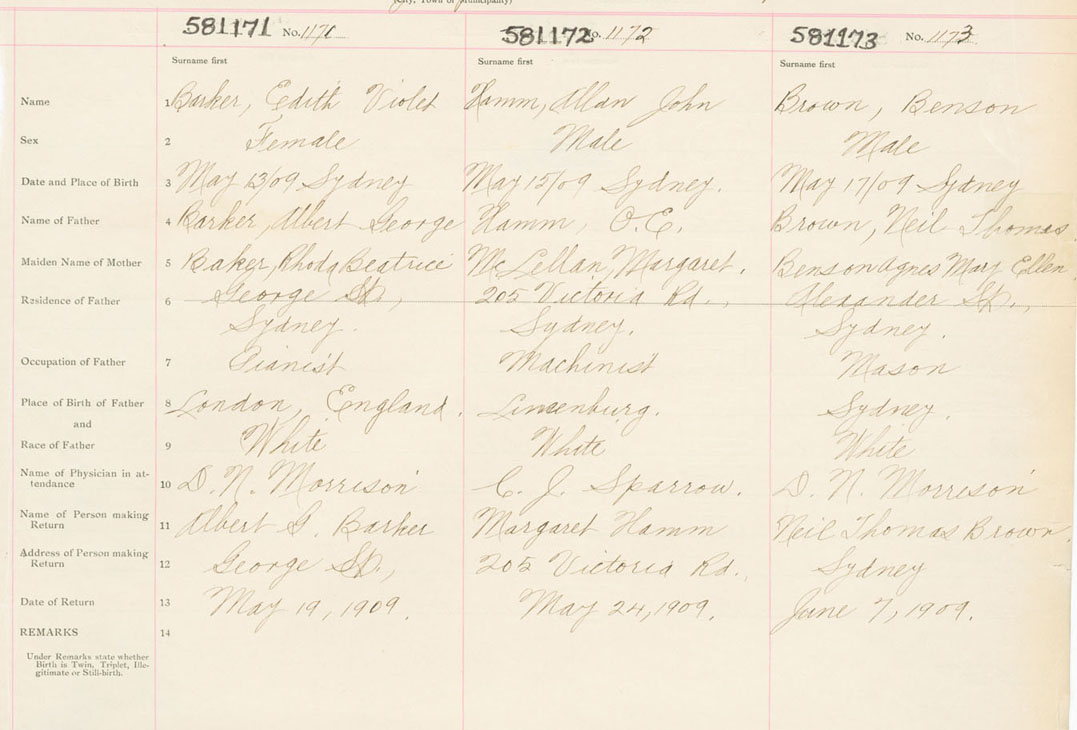 (City, Town or Municipality)
581171 No. 1171 581172 No. 1172 581173 No. 1173
Surname first Surname first Surname first
Name 1 Barker, Edith Violet Hamm, Allan John Brown, Benson
Sex 2 Female Male Male
Date and Place of Birth 3 May 13/09 Sydney May 15/09 Sydney. May 17/09 Sydney
Name of Father 4 Barker, Albert George Hamm, O.E. Brown, Neil Thomas
Maiden Name of Mother 5 Baker, Rhoda Beatrice McLellan, Margaret. Benson Agnes Mary Ellen
Residence of Father 6 George St., 205 Victoria Rd., Alexander St.,
Sydney. Sydney. Sydney.
Occupation of Father 7 Pianist Machinist Mason
Place of Birth of Father 8 London, England. Lunenburg. Sydney.
and
Race of Father 9 White White White
Name of Physician in at-
tendance 10 D. N. Morrison C. J. Sparrow. D. N. Morrison
Name of Person making
Return 11 Albert G. Barker Margaret Hamm Neil Thomas Brown.
Address of Person making
Return 12 George St., 205 Victoria Rd., Sydney
Date of Return 13 May 19, 1909. May 24, 1909. June 7, 1909.
REMARKS 14
Under Remarks state whether
Birth is Twin, Triplet, Ille-
gitimate or Still-birth.